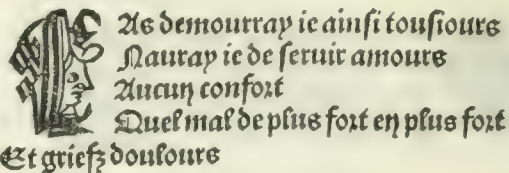 LAs demourray ie ainſi touſiours
Nauray ie de ſeruir amours
Aucun confort
Quel mal de plus fort en plus fort
Et griefz doulours